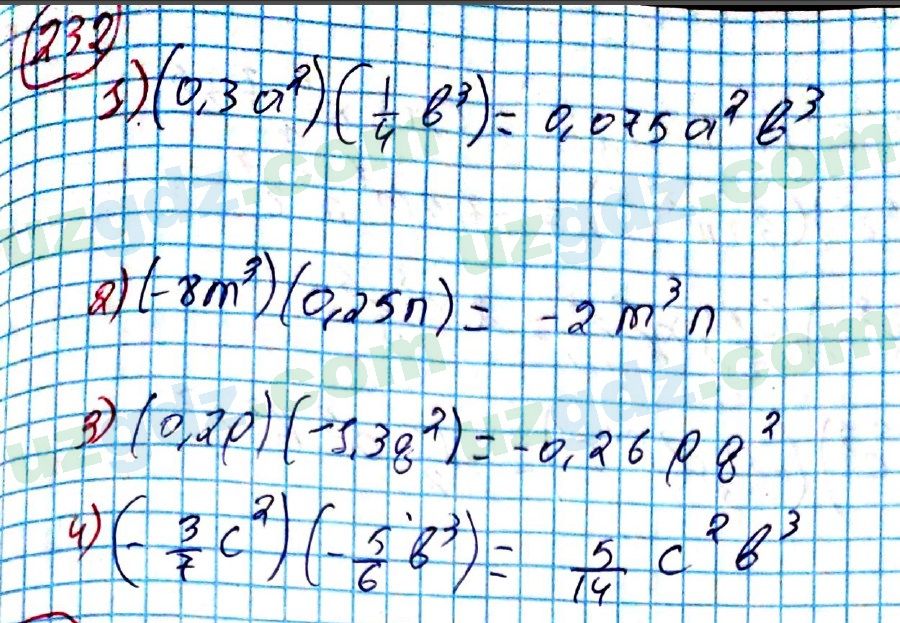 232
1) (0,3a²)(1/4 b³) = 0,075a² b³
2) (-8m³)(0,25n) = -2m³n
3) (0,2p)(-1,3q²) = -0,26pq²
4) (-3/7 c²)(-5/6 b³) = 5/14 c² b³
uzgdz.com
uzgdz.com
uzgdz.com
uzgdz.com